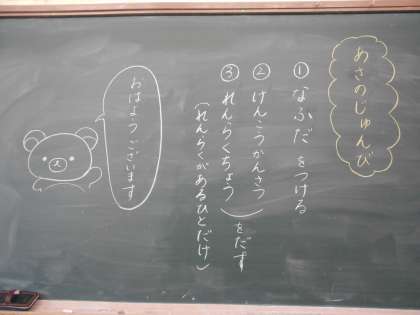 あさのじゅんび
① なふだをつける
② けんこうかんさつ
③ れんらくちょう
をだす
(れんらくがあるひとだけ)
おはようございます